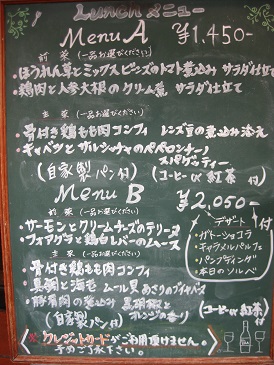 Lunch メニュー
Menu A ¥1,450-
前菜 (一品お選びください)
・ほうれん草とミックスビーンズのトマト煮込み サラダ仕立て
・鶏肉と人参大根のクリーム煮 サラダ仕立て
主菜 (一品お選びください)
・骨付き鶏もも肉コンフィ レンズ豆の煮込み添え
・キャベツとサルシッチャのペペロンチーノ
スパゲッティー
(自家製パン付) (コーヒーor紅茶付)
Menu B ¥2,050-
前菜 (一品お選びください)
・サーモンとクリームチーズのテリーヌ
・フォアグラと鶏白レバーのムース
主菜 (一品お選びください)
・骨付き鶏もも肉コンフィ
・真鯛と海老 ムール貝 あさりのブイヤベース
・豚肩肉の煮込み 黒胡椒と
オレンジの香り
(自家製パン付)
デザート付
・ガトーショコラ
・キャラメルパルフェ
・パンプディング
・本日のソルベ
(コーヒーor紅茶付)
※クレジットカードがご利用頂けません。
予めご了承下さい。